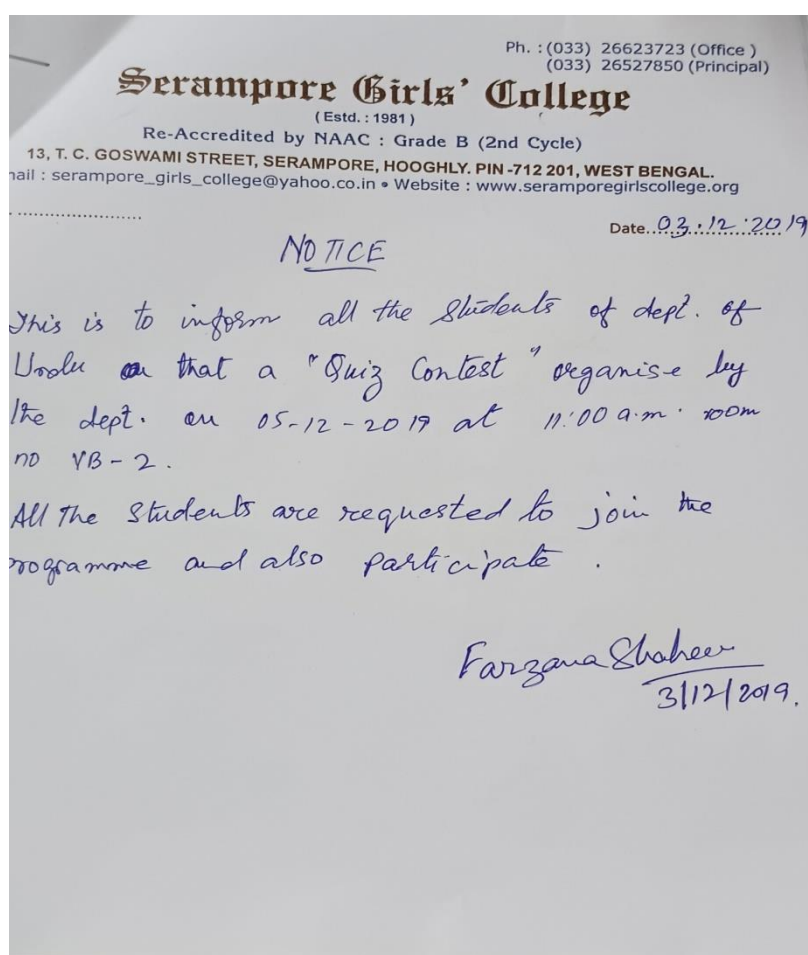 Ph. : (033) 26623723 (Office )
(033) 26527850 (Principal)
Serampore Girls' College
( Estd. : 1981 )
Re-Accredited by NAAC : Grade B (2nd Cycle)
13, T. C. GOSWAMI STREET, SERAMPORE, HOOGHLY. PIN -712 201, WEST BENGAL.
nail : serampore_girls_college@yahoo.co.in • Website : www.seramporegirlscollege.org
Date..03.12.2019
NOTICE
This is to inform all the Students of dept. of
Urdu that a "Quiz Contest" organise by
the dept. on 05-12-2019 at 11:00 a.m. room
no VB-2.
All the Students are requested to join the
rogramme and also participate .
Farzana Shaheen
3/12/2019.